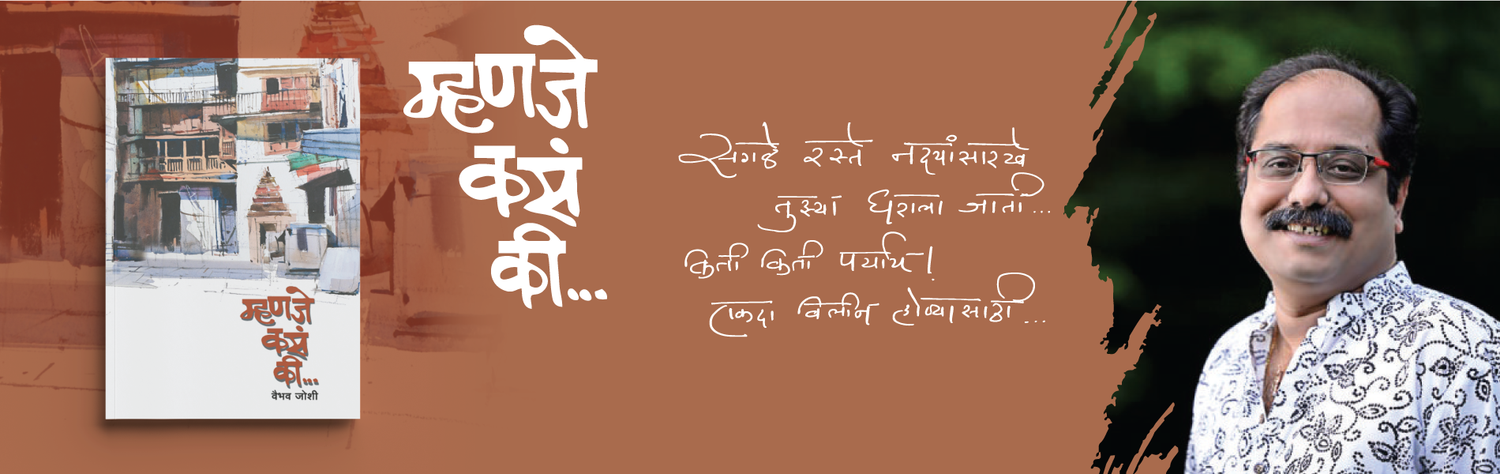 म्हणजे
कसं
की...
वैभव जोशी
म्हणजे
कसं
की...
सगळे रस्ते नद्यांसारखे
तुझ्या घराला जाती...
किती किती पर्याय!
एकदा विलीन होण्यासाठी...